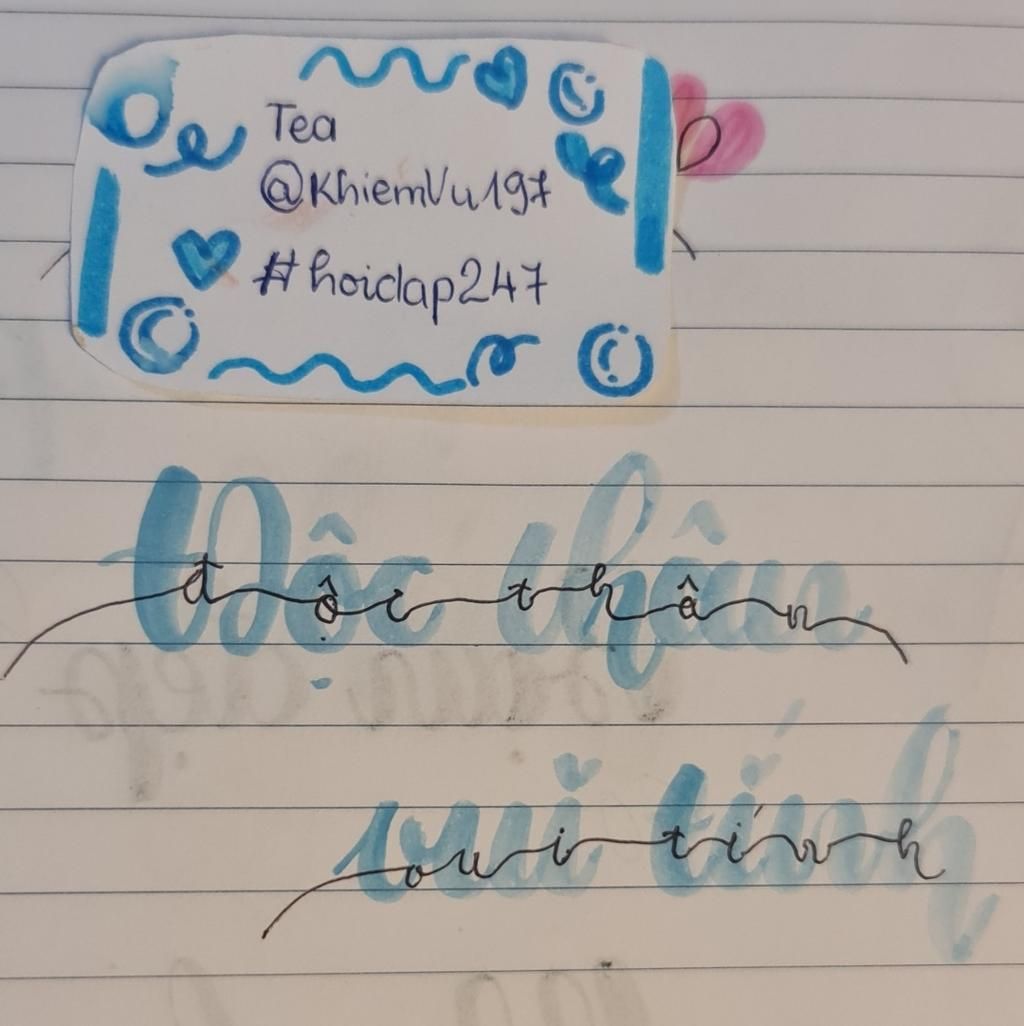 Tea
@KhiemVu197
#hoidap247
Độc thân
độc thân
vui tính
vui tính